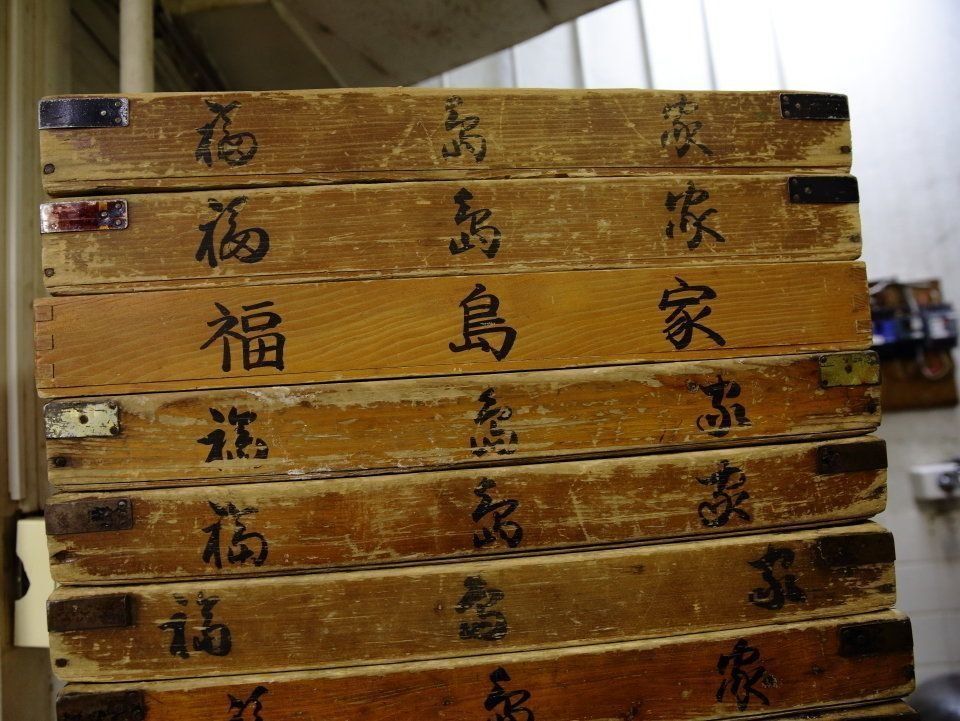 福島家
福島家
福島家
福島家
福島家
福島家
島家